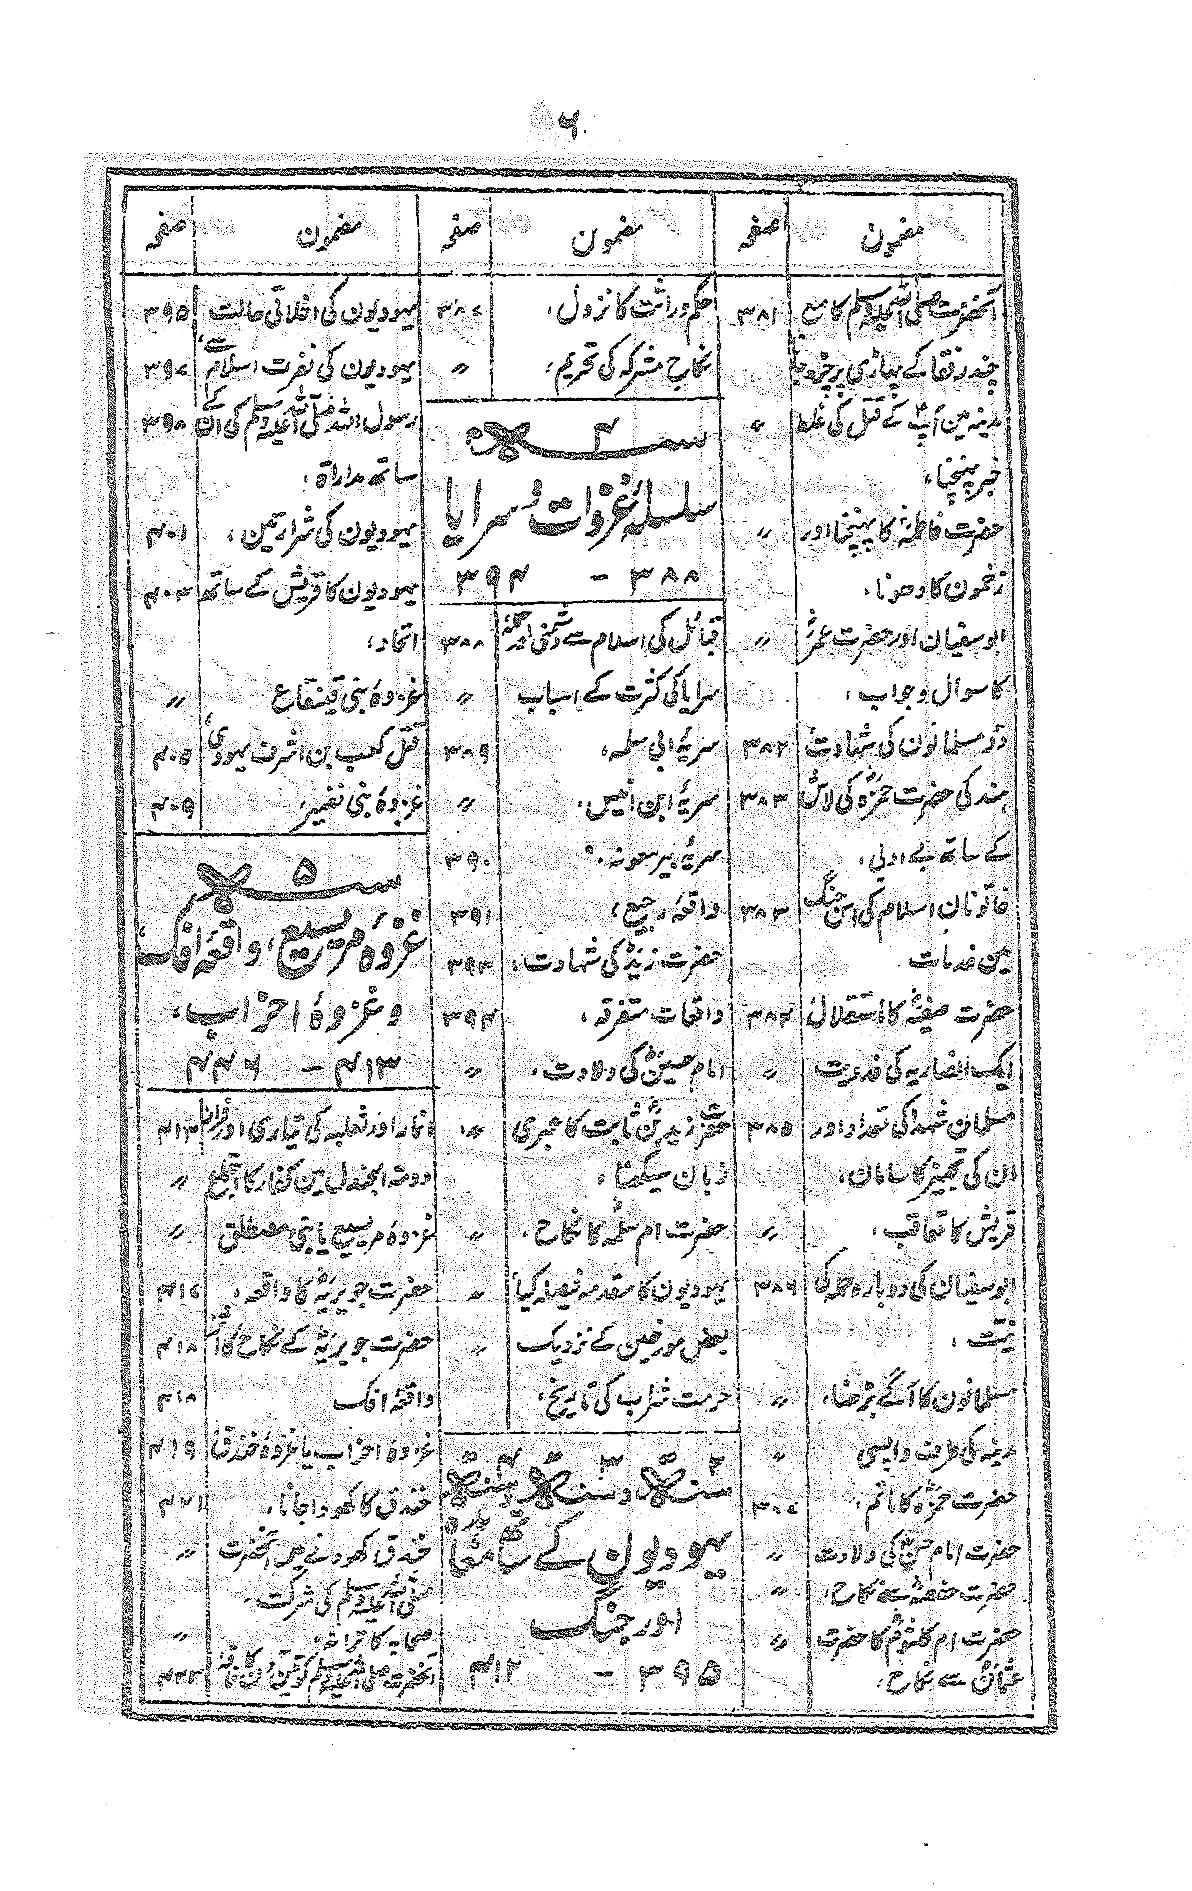 ۶
مضمون صفحہ
آنحضرت صلی اللہ علیہ وسلم کا مع ۳۸۱
چند رفقا کے پہاڑی پر چڑھنا
مدینہ مین آپ کے قتل کی غلط 〃
خبر پہنچنا،
حضرت فاطمہؓ کا پہنچنا اور 〃
زخمون کا دھونا،
ابو سفیان اور حضرت عمرؓ 〃
کا سوال و جواب،
دو مسلمانون کی شہادت ۳۸۲
ہند کی حضرت حمزہؓ کی لاش ۳۸۳
کے ساتھ بے ادبی،
خاتونان اسلام کی اس جنگ ۳۸۳
مین خدمات
حضرت صفیہؓ کا استقلال ۳۸۴
ایک انصاریہ کی فدویت 〃
مسلمان شہدا کی تعداد اور ۳۸۵
ان کی تجہیز کا سامان،
قریش کا تعاقب، 〃
ابو سفیان کی دوبارہ حملہ کی ۳۸۶
نیت،
مسلمانون کا آگے بڑھنا، 〃
مدینہ کی طرف واپسی 〃
حضرت حمزہؓ کا ماتم، ۳۸۷
حضرت امام حسنؓ کی ولادت 〃
حضرت حفصہؓ سے نکاح، 〃
حضرت ام کلثومؓ کا حضرت 〃
عثمانؓ سے نکاح،
مضمون صفحہ
حکم وراثت کا نزول، ۳۸۷
نکاح مشرکہ کی تحریم، 〃
سنہ ۴ھ
سلسلۂ غزوات و سرایا
۳۸۸ - ۳۹۴
قبائل کی اسلام سے دشمنی اور ۳۸۸
سرایا کی کثرت کے اسباب 〃
سریۂ ابی سلمہ، ۳۸۹
سریۂ ابن انیس، 〃
سریۂ بیر معونہ، ۳۹۰
واقعۂ رجیع، ۳۹۱
حضرت زیدؓ کی شہادت، ۳۹۳
واقعات متفرقہ، ۳۹۴
امام حسینؓ کی ولادت، 〃
حضرت زیدؓ بن ثابت کا عبری 〃
زبان سیکھنا،
حضرت ام سلمہؓ کا نکاح، 〃
یہودیون کا مقدمہ فیصلہ کیا 〃
بعض مورخین کے نزدیک 〃
حرمت شراب کی تاریخ،
سنہ ۲ھ و سنہ ۳ھ و سنہ ۴ھ
یہودیون کے ساتھ معاہدہ
اور جنگ
۳۹۵ - ۴۱۲
مضمون صفحہ
یہودیون کی اخلاقی حالت ۳۹۵
یہودیون کی نفرت اسلام سے، ۳۹۷
رسول اللہ صلی اللہ علیہ وسلم کی ان کے ۳۹۸
ساتھ مداراۃ،
یہودیون کی شرارتین، ۴۰۱
یہودیون کا قریش کے ساتھ ۴۰۳
اتحاد،
غزوۂ بنی قینقاع 〃
قتل کعب بن اشرف یہودی، ۴۰۵
غزوۂ بنی نضیر، ۴۰۹
سنہ ۵ھ
غزوۂ مریسیع، واقعۂ افک،
و غزوۂ احزاب،
۴۱۳ - ۴۴۶
انمار اور ثعلبہ کی تیاری اور فرار ۴۱۳
دومۃ الجندل مین کفار کا اجتماع 〃
غزوۂ مریسیع یا بنی مصطلق 〃
حضرت جویریہؓ کا واقعہ، ۴۱۶
حضرت جویریہؓ کے نکاح کا ۴۱۸
واقعۂ افک ۴۱۸
غزوۂ احزاب یا غزوۂ خندق ۴۱۹
خندق کا کھودا جانا، ۴۲۱
خندق کھودنے مین آنحضرت 〃
صلی اللہ علیہ وسلم کی شرکت،
صحابہ کا 〃
آنحضرت صلی اللہ علیہ وسلم کو تین دن کا فاقہ